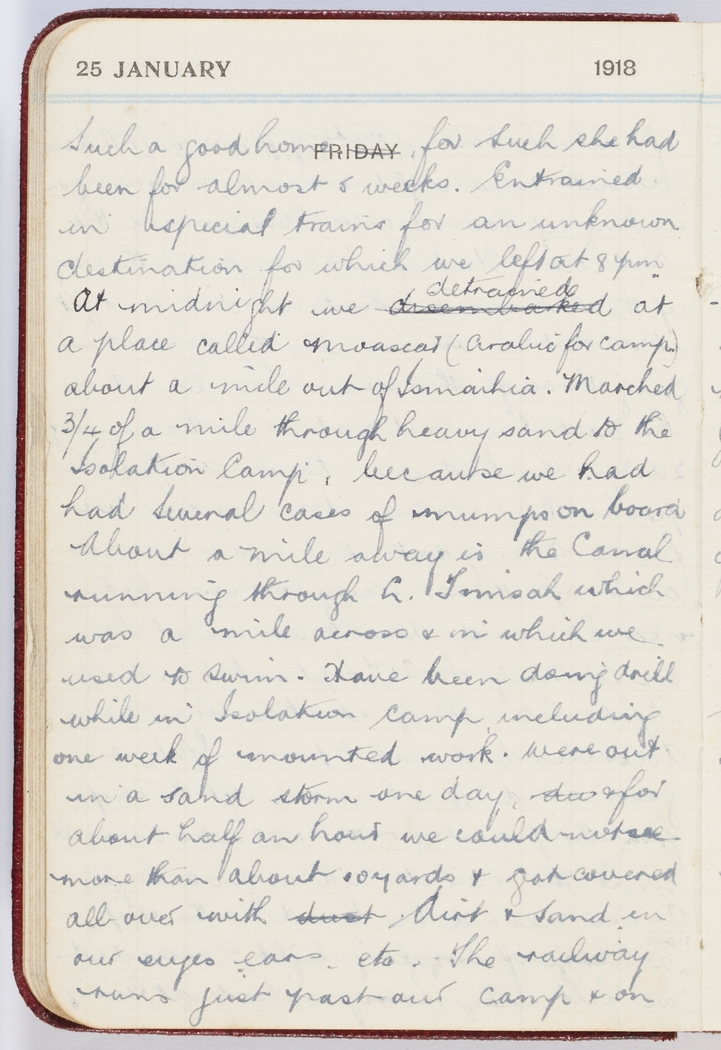 25 JANUARY 1918
FRIDAY
Such a good home, for such she had
been for almost 5 weeks. Entrained
in special trains for an unknown
destination for which we left at 8 pm
At midnight we disembarked detrained at
a place called Moascar (Arabic for camp)
about a mile out of Ismailia. Marched
3/4 of a mile through heavy sand to the
Isolation Camp, because we had
had several cases of mumps on board
About a mile away is the Canal
running through L. Timsah which
was a mile across & in which we
used to swim. Have been doing drill
while in Isolation camp including
one week of mounted work. Were out
in a sand storm one day, & for
about half an hour we could not see
more than about 10 yards & got covered
all over with dust dirt & sand in
our eyes ears etc. The railway
runs just past our camp & on